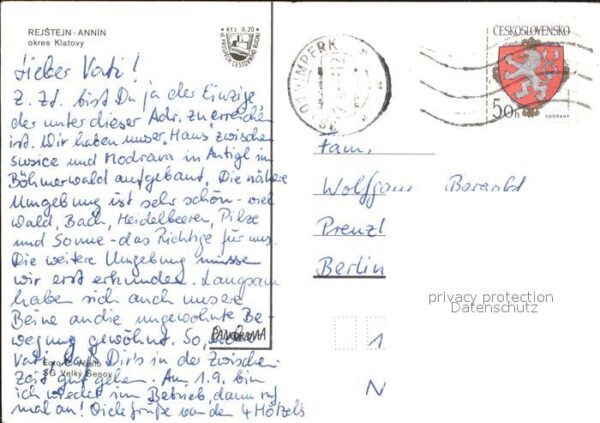 REJŠTEJN - ANNÍN
okres Klatovy
Kčs 0,20
VE PROSPĚCH CESTOVNÍHO RUCHU
Lieber Vati!
Z. Zt. bist Du ja der Einzige
der unter dieser Adr. zu erreichen
ist. Wir haben unser "Haus" zwischen
Susice und Modrava in Antigl im
Böhmerwald aufgebaut. Die nähere
Umgebung ist sehr schön - viel
Wald, Bach, Heidelbeeren, Pilze
und Sonne - das Richtige für uns.
Die weitere Umgebung müssen
wir erst erkunden. Langsam
haben sich auch unsere
Beine an die ungewohnte Be-
wegung gewöhnt. So,
Vati, laß Dir's in der Zwischen-
zeit gut gehen. Am 1.9. bin
ich wieder im Betrieb, dann ruf
mal an! Viele Grüße von den 4 Hötzels
PANORAMA
SG Velký Šenov
VIMPERK
ČESKOSLOVENSKO
50h
VODŇANY
Fam.
Wolfgang
Prenzl
Berlin
privacy protection
Datenschutz
1
N